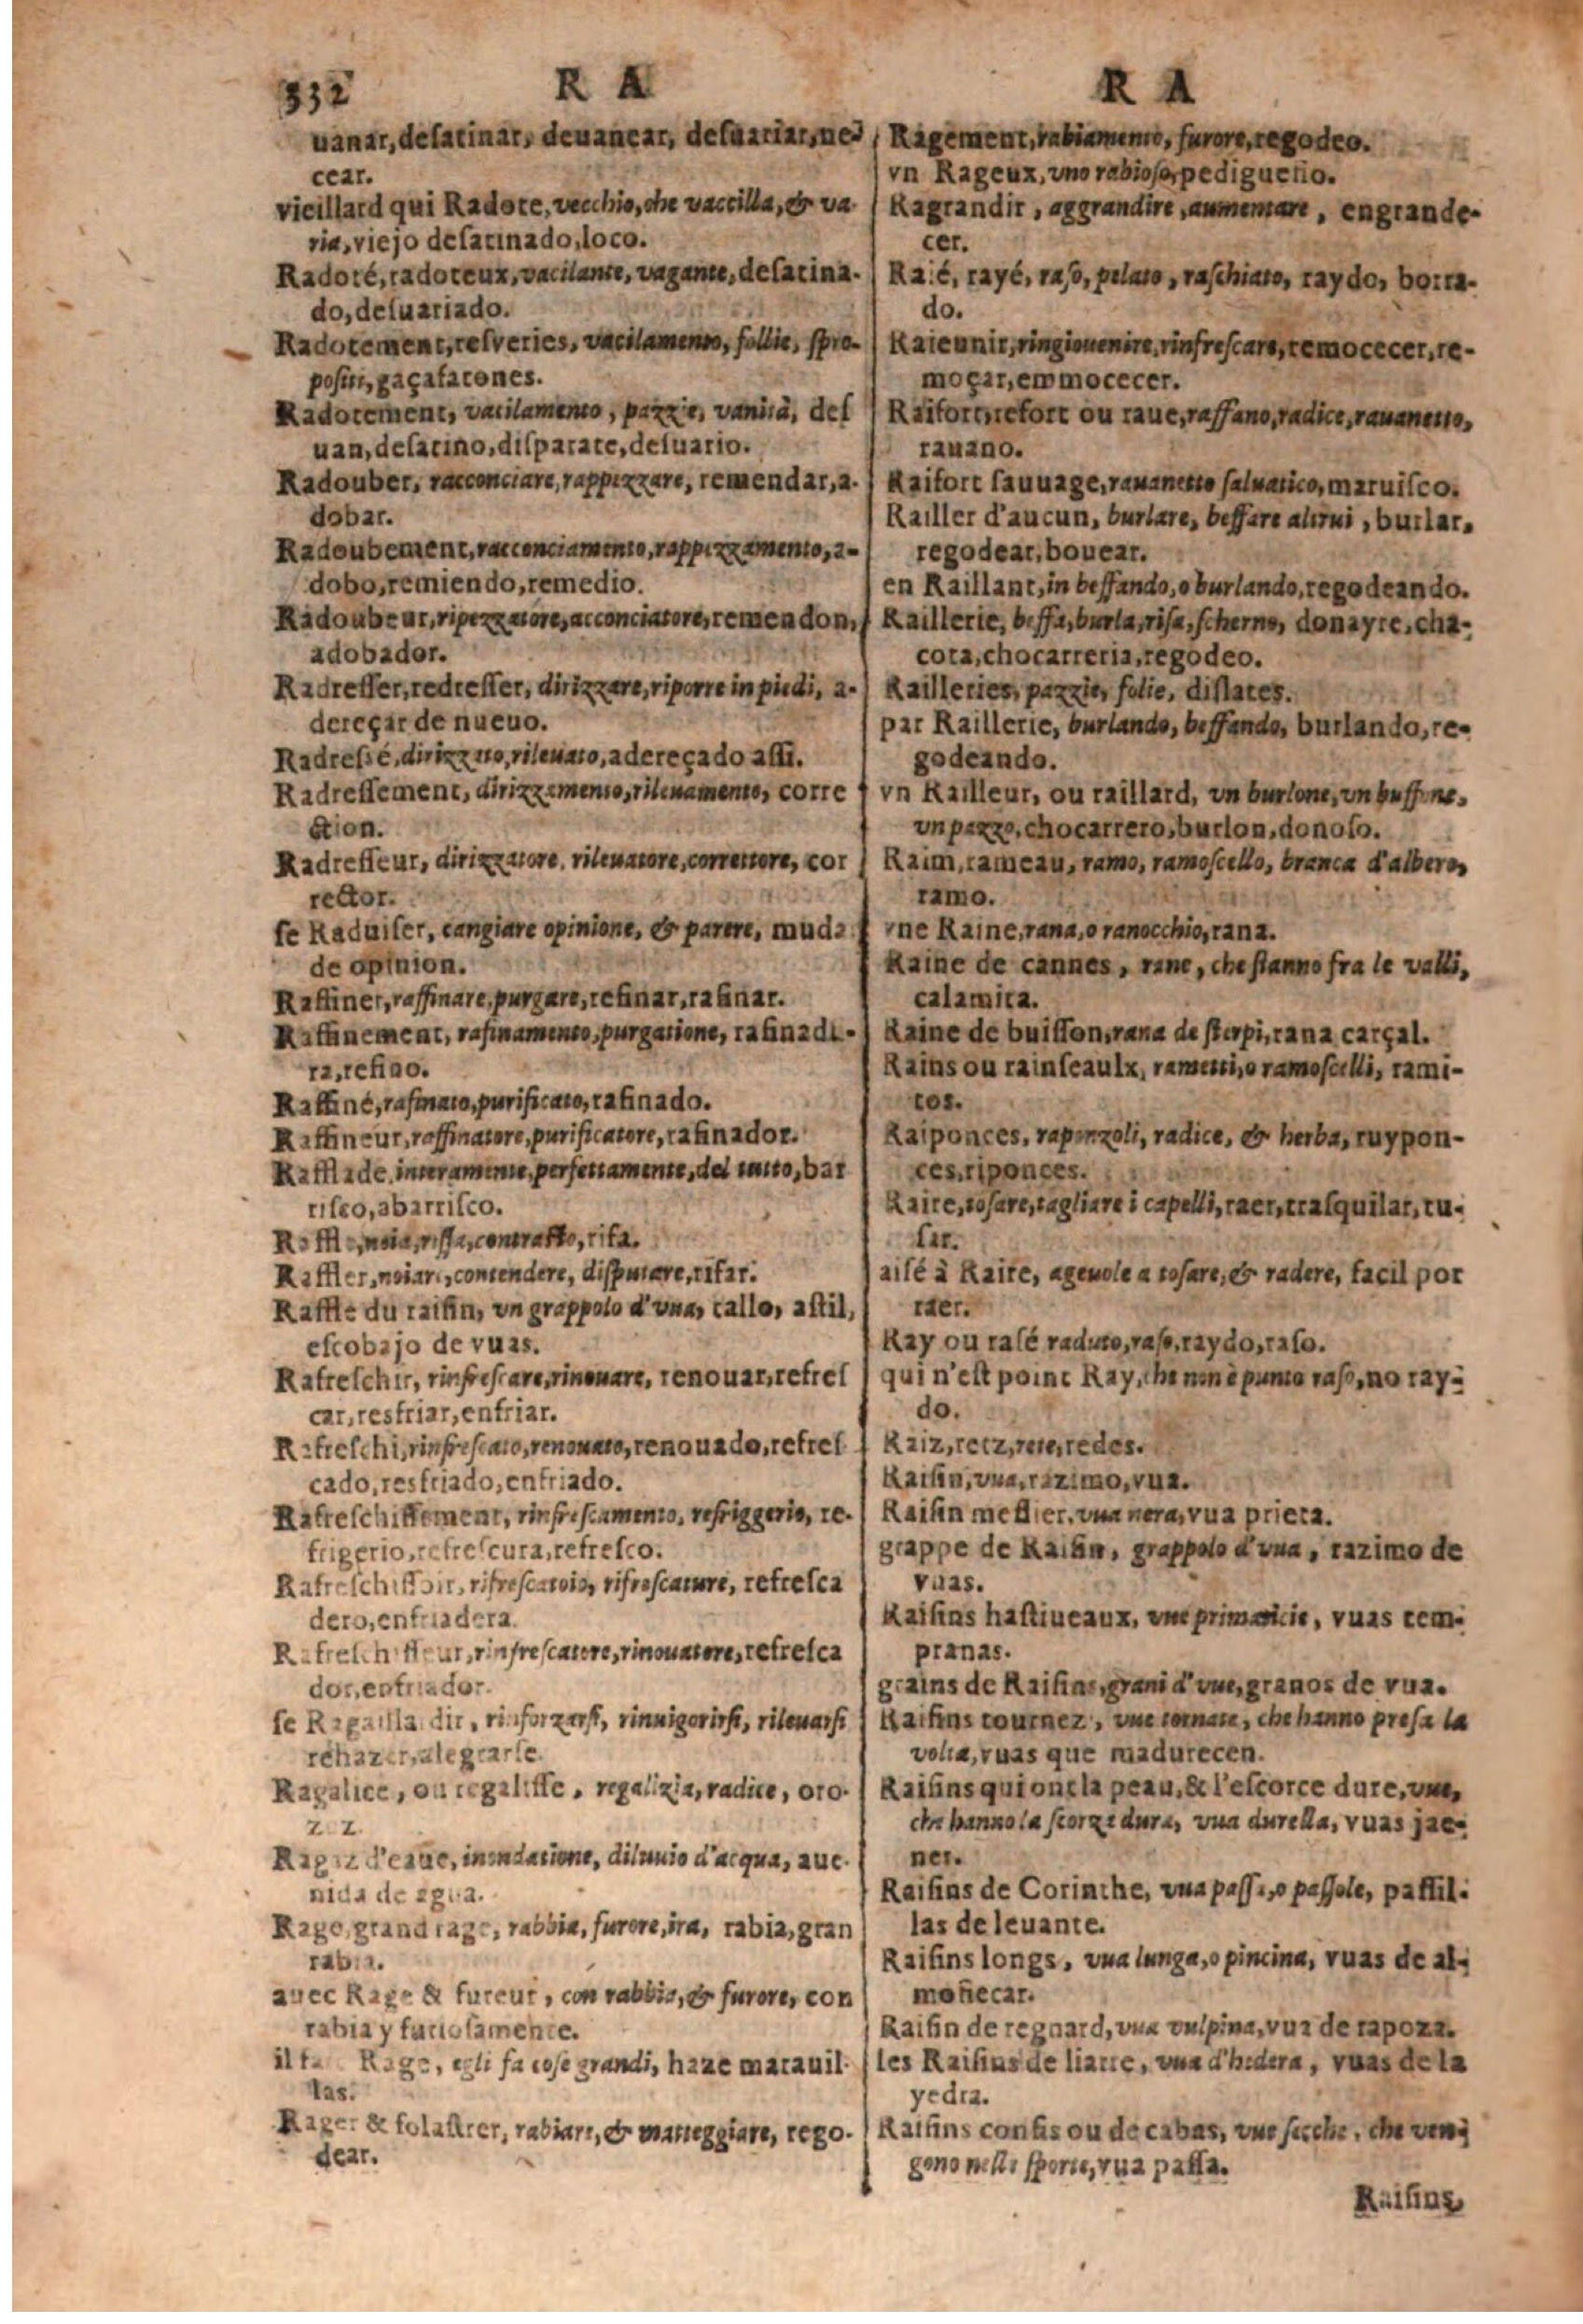 332
R A
R A
uanar, deſatinar, deuanear, deſuariar, ne-
cear.
vieillard qui Radote, vecchio, che vaccilla, & va-
ria, viejo deſatinado, loco.
Radoté, radoteux, vacilante, vagante, deſatina-
do, deſuariado.
Radotement, reſveries, vacilamento, follie, ſpro-
poſiti, gaçafatones.
Radotement, vacilamento, pazzie, vanità, deſ
uan, deſatino, diſparate, deſuario.
Radouber, racconciare, rappezzare, remendar, a-
dobar.
Radoubement, racconciamento, rappezzamento, a-
dobo, remiendo, remedio.
Radoubeur, ripezzatore, acconciatore, remendon,
adobador.
Radreſſer, redreſſer, dirizzare, riporre in piedi, a-
dereçar de nueuo.
Radreſſé, dirizzato, rileuato, adereçado aſſi.
Radreſſement, dirizzamento, rileuamento, corre
ction.
Radreſſeur, dirizzatore, rileuatore, correttore, cor
rector.
ſe Raduiſer, cangiare opinione, & parere, muda
de opinion.
Raffiner, raffinare, purgare, refinar, rafinar.
Raffinement, rafinamento, purgatione, rafinadu-
ra, refino.
Raffiné, rafinato, purificato, rafinado.
Raffineur, raffinatore, purificatore, rafinador.
Rafflade, interamente, perfettamente, del tutto, bar
riſco, abarriſco.
Raffle, noia, riſſa, contraſto, rifa.
Raffler, noiare, contendere, diſputare, rifar.
Raffle du raiſin, vn grappolo d'vua, tallo, aſtil,
eſcobajo de vuas.
Rafreſchir, rinfreſcare, rinouare, renouar, refreſ
car, resfriar, enfriar.
Rafreſchi, rinfreſcato, renouato, renouado, refreſ
cado, resfriado, enfriado.
Rafreſchiſſement, rinfreſcamento, refriggerio, re-
frigerio, refreſcura, refreſco.
Rafreſchiſſoir, rifreſcatoio, rifreſcature, refreſca
dero, enfriadera.
Rafreſchiſſeur, rinfreſcatore, rinouatore, refreſca
dor, enfriador.
ſe Ragaillardir, rinforzarſi, rinuigorirſi, rileuarſi
rehazer, alegrarſe.
Ragalice, ou regaliſſe, regalizia, radice, oro-
zuz.
Ragaz d'eaue, inondatione, diluuio d'acqua, aue-
nida de agua.
Rage, grand rage, rabbia, furore, ira, rabia, gran
rabia.
auec Rage & fureur, con rabbia, & furore, con
rabia y furioſamente.
il fait Rage, egli fa coſe grandi, haze marauil-
las.
Rager & folaſtrer, rabiare, & matteggiare, rego-
dear.
Ragement, rabiamento, furore, regodeo.
vn Rageux, vno rabioſo, pedigueño.
Ragrandir, aggrandire, aumentare, engrande-
cer.
Raié, rayé, raſo, pelato, raſchiato, raydo, borra-
do.
Raieunir, ringiouenire, rinfreſcare, remocecer, re-
moçar, emmocecer.
Raifort, refort ou raue, raffano, radice, rauanetto,
rauano.
Raifort ſauuage, rauanetto ſaluatico, maruiſco.
Railler d'aucun, burlare, beffare altrui, burlar,
regodear, bouear.
en Raillant, in beffando, o burlando, regodeando.
Raillerie, beffa, burla, riſa, ſcherno, donayre, cha-
cota, chocarreria, regodeo.
Railleries, pazzie, folie, diſlates.
par Raillerie, burlando, beffando, burlando, re-
godeando.
vn Railleur, ou raillard, vn burlone, vn buffone,
vn pazzo, chocarrero, burlon, donoſo.
Raim, rameau, ramo, ramoſcello, branca d'albero,
ramo.
vne Raine, rana, o ranocchio, rana.
Raine de cannes, rane, che ſtanno fra le valli,
calamita.
Raine de buiſſon, rana de ſterpi, rana carçal.
Rains ou rainſeaulx, rametti, o ramoſcelli, rami-
tos.
Raiponces, raponzoli, radice, & herba, ruypon-
ces, riponces.
Raire, toſare, tagliare i capelli, raer, traſquilar, tu-
ſar.
aiſé à Raire, ageuole a toſare, & radere, facil por
raer.
Ray ou raſé raduto, raſo, raydo, raſo.
qui n'eſt point Ray, che non è punto raſo, no ray-
do.
Raiz, retz, rete, redes.
Raiſin, vua, razimo, vua.
Raiſin meſlier, vua nera, vua prieta.
grappe de Raiſin, grappolo d'vua, razimo de
vuas.
Raiſins haſtiueaux, vue primaticie, vuas tem-
pranas.
grains de Raiſins, grani d'vue, granos de vua.
Raiſins tournez, vue tornate, che hanno preſa la
volta, vuas que madurecen.
Raiſins qui ont la peau, & l'eſcorce dure, vue,
che hanno la ſcorza dura, vua durella, vuas jae-
nes.
Raiſins de Corinthe, vua paſſa, o paſſole, paſſil-
las de leuante.
Raiſins longs, vua lunga, o pincina, vuas de al-
moñecar.
Raiſin de regnard, vua vulpina, vua de rapoza.
les Raiſins de liarre, vua d'hedera, vuas de la
yedra.
Raiſins confis ou de cabas, vue ſecche, che ven-
gono nelle ſporte, vua paſſa.
Raiſins